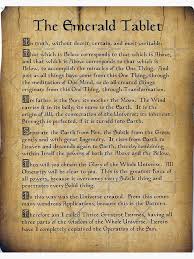 The Emerald Tablet
In truth, without deceit, certain, and most veritable.
That which is Below corresponds to that which is Above,
and that which is Above corresponds to that which is
Below, to accomplish the miracles of the One Thing. And
just as all things have come from this One Thing, through
the meditation of One Mind, so do all created things
originate from this One Thing, through Transformation.
Its father is the Sun; its mother the Moon. The Wind
carries it in its belly; its nurse is the Earth. It is the
origin of All, the consecration of the Universe; its inherent
Strength is perfected, if it is turned into Earth.
Separate the Earth from Fire, the Subtle from the Gross,
gently and with great Ingenuity. It rises from Earth to
Heaven and descends again to Earth, thereby combining
within Itself the powers of both the Above and the Below.
Thus will you obtain the Glory of the Whole Universe. All
Obscurity will be clear to you. This is the greatest Force of
all powers, because it overcomes every Subtle thing and
penetrates every Solid thing.
In this way was the Universe created. From this comes
many wondrous Applications, because this is the Pattern.
Therefore am I called Thrice Greatest Hermes, having all
three parts of the wisdom of the Whole Universe. Herein
have I completely explained the Operation of the Sun.